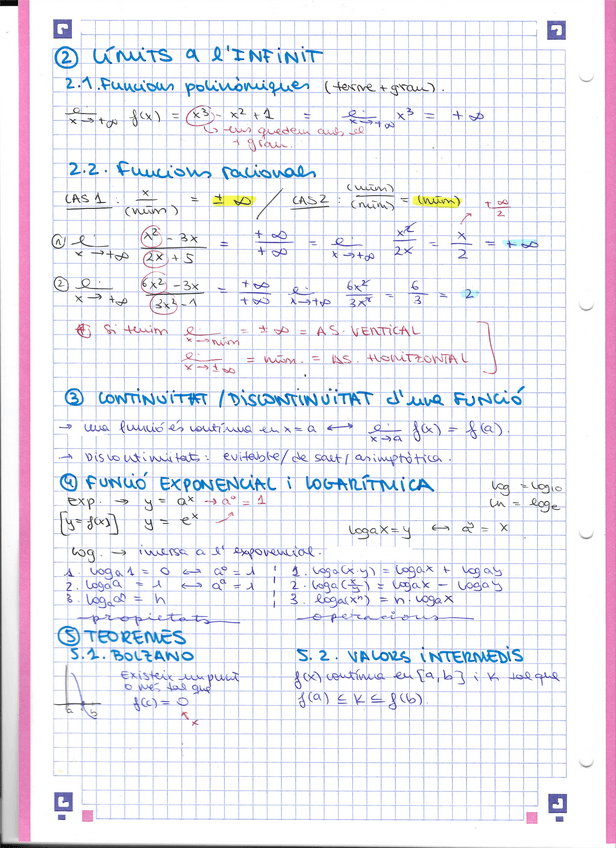 ② LÍMITS A L'INFINIT
2.1. Funcions polinòmiques (terme + grau).
lim x→+∞ f(x) = x³ - x² + 1 = lim x→+∞ x³ = +∞
↳ ens quedem amb el
+ grau.
2.2. Funcions racionals
CAS 1 : x/(núm) = ± ∞ / CAS 2 : (núm)/(núm) = (núm)
+∞/2
1) lim x→+∞ x² - 3x / 2x + 5 = +∞/+∞ = lim x→+∞ x²/2x = x/2 = +∞
2) lim x→+∞ 6x² - 3x / 3x² - 1 = +∞/+∞ lim x→+∞ 6x²/3x² = 6/3 = 2
Si tenim lim x→núm = ± ∞ = AS. VERTICAL
lim x→±∞ = núm. = AS. HORITZONTAL
③ CONTINUÏTAT / DISCONTINUÏTAT d'una FUNCIÓ
→ una funció és contínua en x = a ⟷ lim x→a f(x) = f(a).
→ Discontinuitats: evitable/de salt/asimptòtica.
④ FUNCIÓ EXPONENCIAL i LOGARÍTMICA
log = log10
ln = loge
Exp. → y = aˣ → a⁰ = 1
[y=f(x)] y = eˣ
logax = y ⟷ aʸ = x
Log. → inversa a l'exponencial.
1. loga1 = 0 ⟷ a⁰ = 1
2. logaa = 1 ⟷ a⁰ = 1
3. logaaⁿ = n
propietats
1. loga(x·y) = logax + logay
2. loga(x/y) = logax - logay
3. loga(xⁿ) = n · logax
operacions
⑤ TEOREMES
5.1. BOLZANO
Existeix un punt
o més tal que
f(c) = 0
x
a b
5.2. VALORS INTERMEDIS
f(x) contínua en [a,b] i K tal que
f(a) ≤ K ≤ f(b).